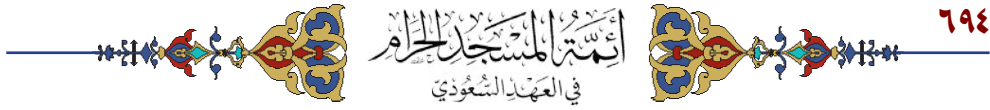 ٦٩٤
أَئِمَّةُ المَسْجِدِ الحَرَامِ
في العَهْدِ السُّعُودِيّ